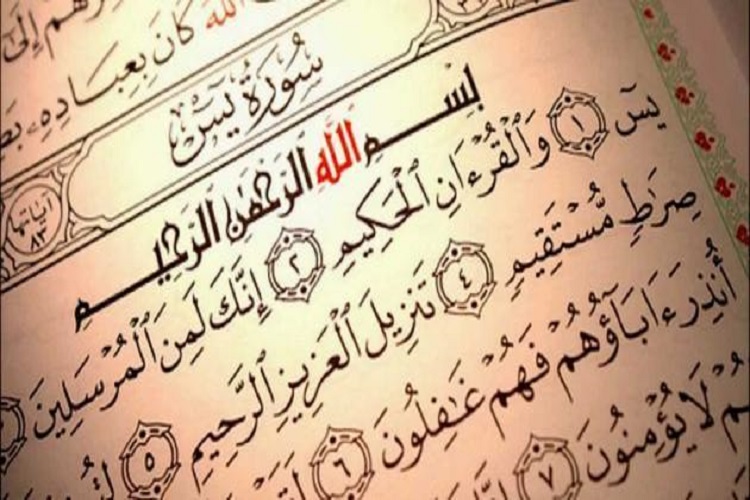 إِلَىٰ
ٱللَّهَ كَانَ بِعِبَادِهِۦ
سُورَةُ يسٓ
آياتها ٨٣
بِسْمِ ٱللَّهِ ٱلرَّحْمَٰنِ ٱلرَّحِيمِ
يسٓ ١ وَٱلْقُرْءَانِ ٱلْحَكِيمِ ٢ إِنَّكَ لَمِنَ ٱلْمُرْسَلِينَ
صِرَٰطٍ مُّسْتَقِيمٍ ٤ تَنزِيلَ ٱلْعَزِيزِ ٱلرَّحِيمِ ٥
أُنذِرَ ءَابَآؤُهُمْ فَهُمْ غَٰفِلُونَ ٦
لَا يُؤْمِنُونَ ٧